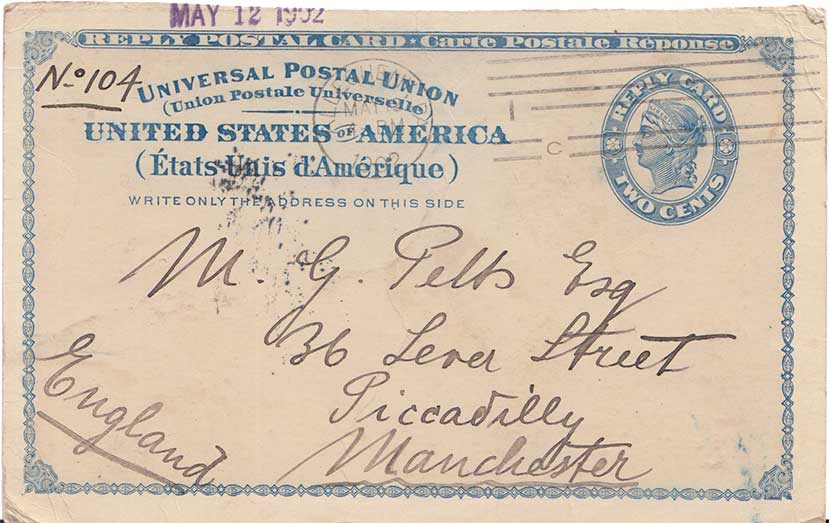 MAY 12 1902
REPLY POSTAL CARD Carte Postale Réponse
No 104
UNIVERSAL POSTAL UNION
(Union Postale Universelle)
UNITED STATES OF AMERICA
(États-Unis d'Amérique)
WRITE ONLY THE ADDRESS ON THIS SIDE
REPLY CARD
TWO CENTS
MAY
PM
1902
1
C
M. G. Pelts Esq
36 Lever Street
Piccadilly
Manchester
England